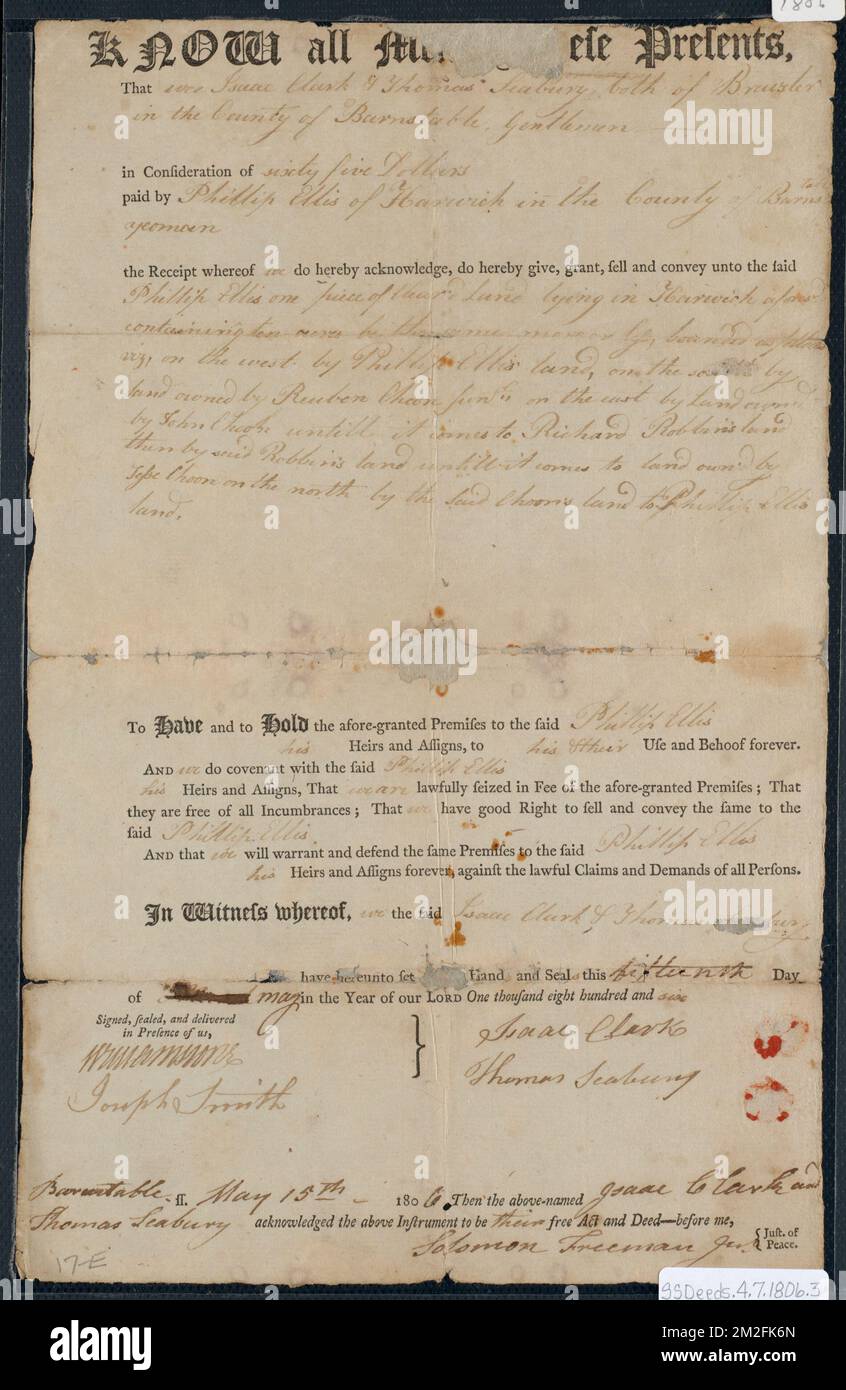 1806
KNOW all Men ese Presents,
That we Isaac Clark & Thomas Seabury both of Brewster
in the County of Barnstable, Gentlemen
in Consideration of sixty five Dollars
paid by Phillip Ellis of Harwich in the County of Barnstable
yeoman
the Receipt whereof we do hereby acknowledge, do hereby give, grant, sell and convey unto the said
Phillip Ellis one piece of Land lying in Harwich
containing ten acres be the same more or less, bounded as
viz, on the west by Phillip Ellis land, on the by
land owned by Reuben on the east by land own'd
by John untill it comes to Richard Robbins land
then by said Robbins land untill it comes to land own'd by
Jesse on the north by the said land to Phillip Ellis
land.
To Have and to Hold the afore-granted Premises to the said Phillip Ellis
his Heirs and Assigns, to his & their Use and Behoof forever.
AND we do covenant with the said Phillip Ellis
his Heirs and Assigns, That we are lawfully seized in Fee of the afore-granted Premises; That
they are free of all Incumbrances; That we have good Right to sell and convey the same to the
said Phillip Ellis
AND that we will warrant and defend the same Premises to the said Phillip Ellis
his Heirs and Assigns forever, against the lawful Claims and Demands of all Persons.
In Witness whereof, we the said Isaac Clark & Thomas
have hereunto set Hand and Seals this fifteenth Day
of may in the Year of our LORD One thousand eight hundred and six
Signed, sealed, and delivered
in Presence of us,
Isaac Clark
Thomas Seabury
Joseph Smith
Barnstable ss. May 15th 1806. Then the above-named Isaac Clark and
Thomas Seabury acknowledged the above Instrument to be their free Act and Deed—before me,
Solomon Freeman Jun. { Just. of Peace.
17-E
SSDeeds.4.7.1806.3
alamy
Image ID: 2M2FK6N
www.alamy.com